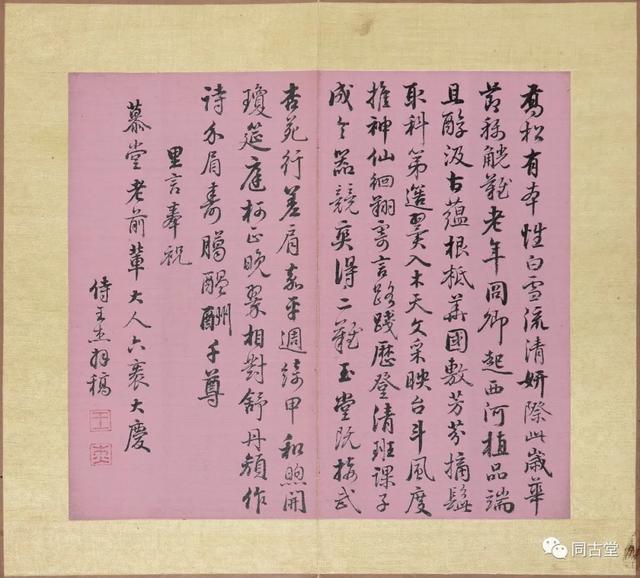 喬松有本性白雪流清妍際此歲華
稱觥難老年卿起西河植品端
且醇汲古蘊根柢華國敷芳芬摘髭
取科第選入木天文采映台斗風度
推神仙徊翔寄言路踐歷登清班課子
成令器競爽得二難玉堂既接武
杏苑行差肩嘉平週錦甲和煦開
瓊筵庭柯正晚翠相對舒丹顏作
詩介眉壽臈醞酬千尊
里言奉祝
慕堂老前輩大人六袠大慶
侍王杰拜稿
王
杰
同古堂